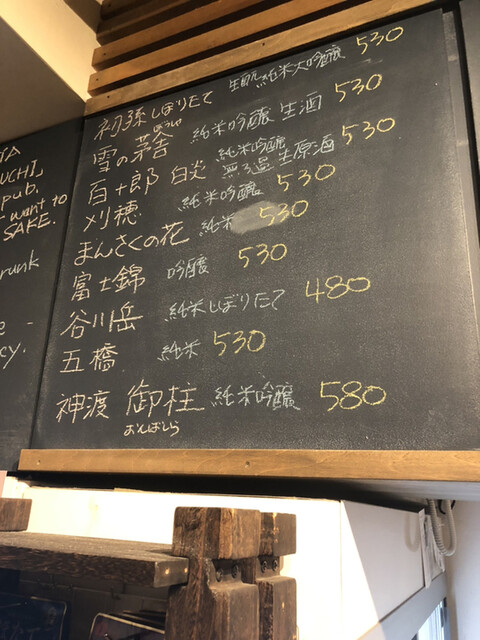 初孫 しぼりたて 生酛純米大吟醸 530
雪の茅舎 純米吟醸 生酒 530
ぼうしゃ
百十郎 白炎 純米吟醸 無ろ過生原酒 530
刈穂 純米吟醸 530
まんさくの花 純米 530
富士錦 吟醸 530
谷川岳 純米しぼりたて 480
五橋 純米 530
神渡 御柱 純米吟醸 580
おんばしら
pub.
want to
SAKE.